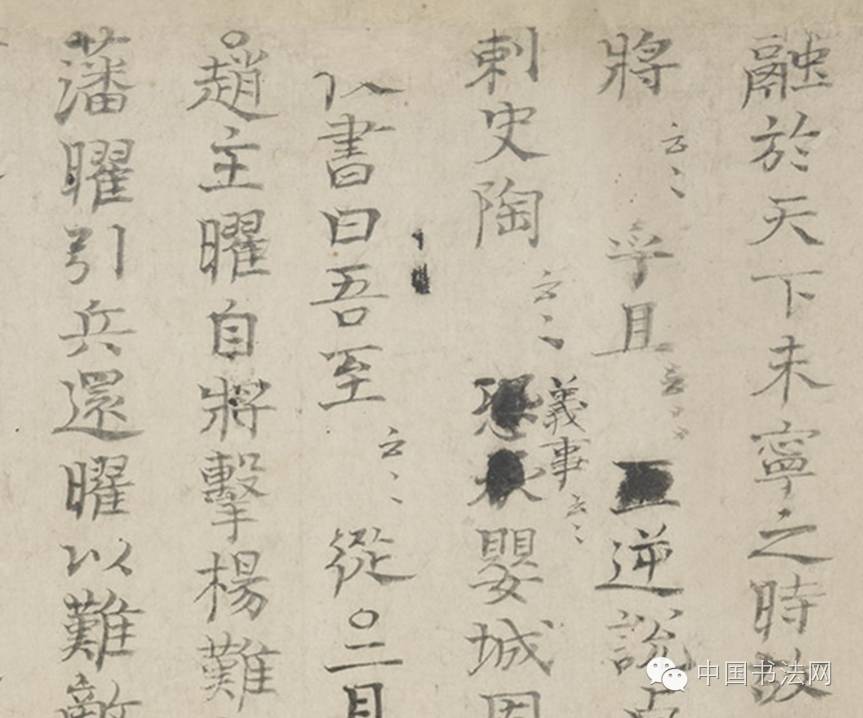 融於天下未寧之時故
將云〻乎且云〻逆說
刺史陶云〻義事云〻嬰城固
以書曰吾至云〻從二月
趙主曜自將擊楊難
藩曜引兵還曜以難敵
中国书法网